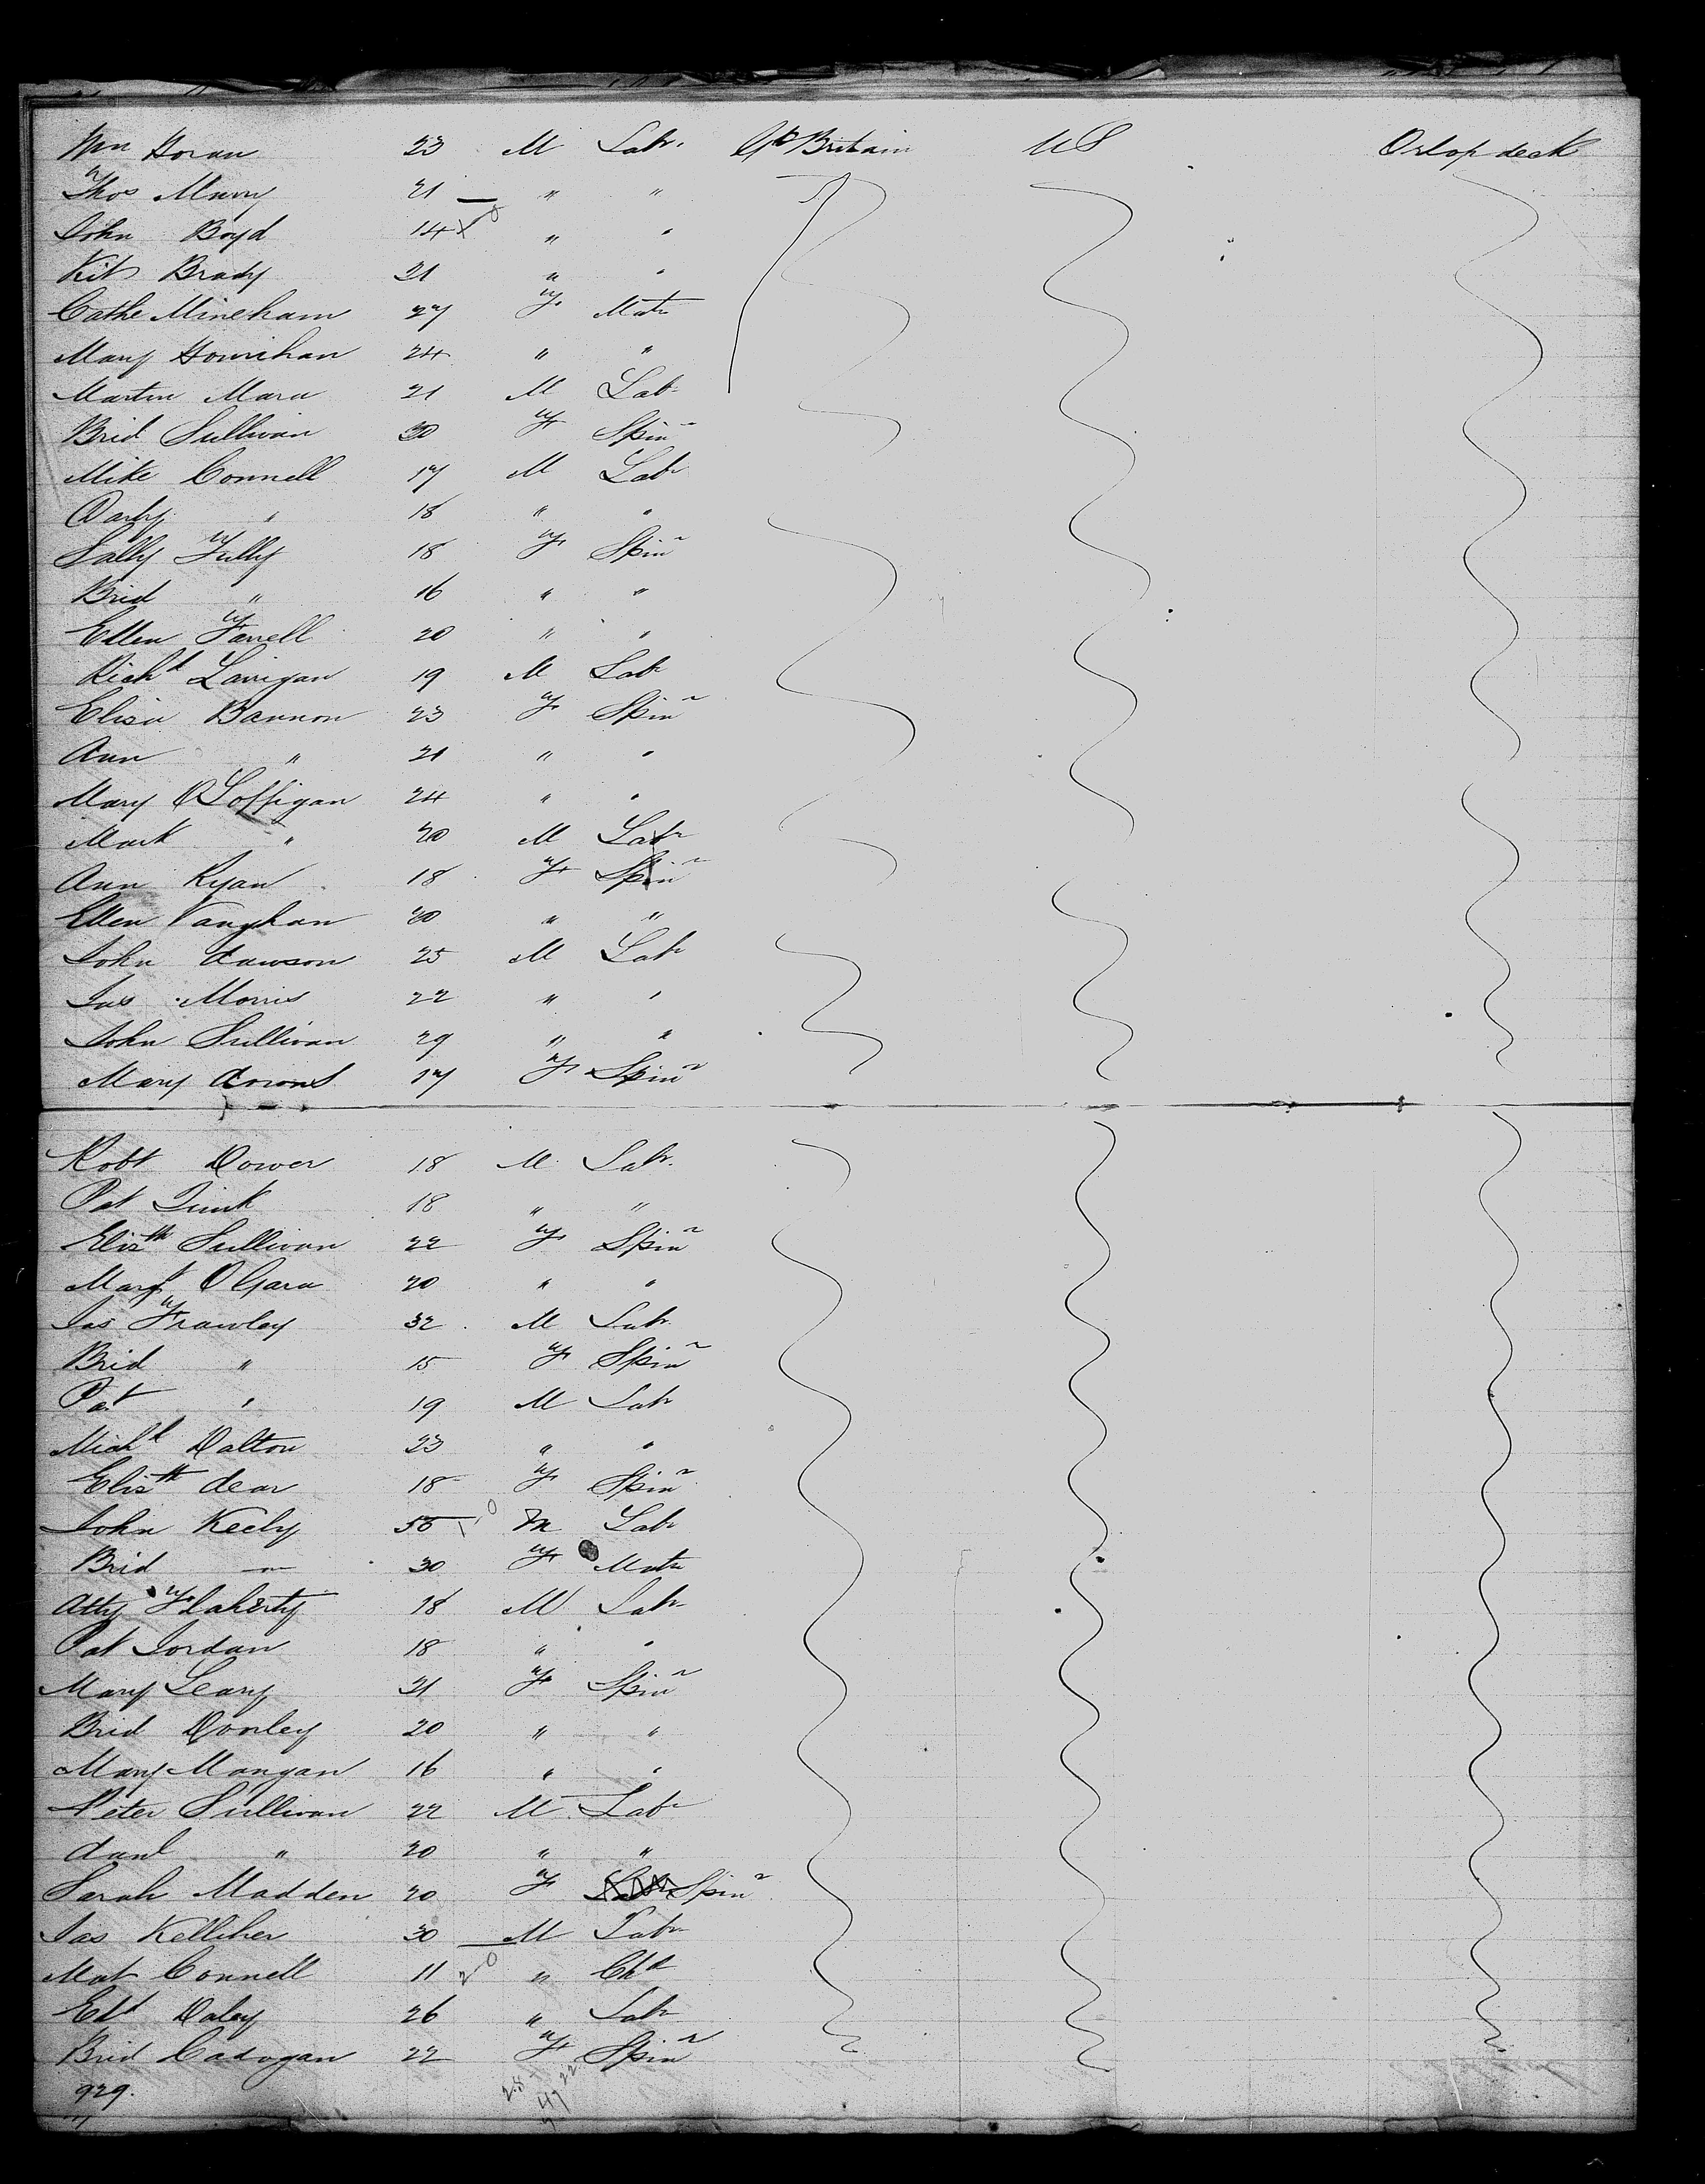 Wm Horan 23 M Labr. Gt Britain US Orlop deck
Thos Murry 21 " "
John Boyd 14 " "
Kit Brady 21 " "
Cathe Mineham 27 F Matr
Mary Hourihan 24 " "
Martin Mara 21 M Labr
Brid Sullivan 30 F Spinr
Mike Connell 17 M Labr
Darby " 18 " "
Sally Fully 18 F Spinr
Brid " 16 " "
Ellen Farrell 20 " "
Richd Larrigan 19 M Labr
Elisa Bannon 23 F Spinr
Ann " 21 " "
Mary OLoffigan 24 " "
Mark " 20 M Labr
Ann Ryan 18 F Spinr
Ellen Vaughan 20 " "
John dawson 25 M Labr
Jas Morris 22 " "
John Sullivan 29 " "
Mary 17 F Spinr
Robt Dower 18 M Labr.
Pat 18 " "
Elizth Sullivan 22 F Spinr
Margt OGara 20 " "
Jas Frawley 32 M Labr
Brid " 15 F Spinr
Pat " 19 M Labr
Michl Dalton 23 " "
Elizth dear 18 F Spinr
John Keely M Labr
Brid " 30 F Matr
Atty Flaherty 18 M Labr
Pat Jordan 18 " "
Mary Leary 21 F Spinr
Brid Donley 20 " "
Mary Mangan 16 " "
Peter Sullivan 22 M Labr
danl " 20 " "
Sarah Madden 20 F Spinr
Jas Kelliher 30 M Labr
Mat Connell 11 " Chd
Edd Daley 26 " Labr
Brid Cadogan 22 F Spinr
929.